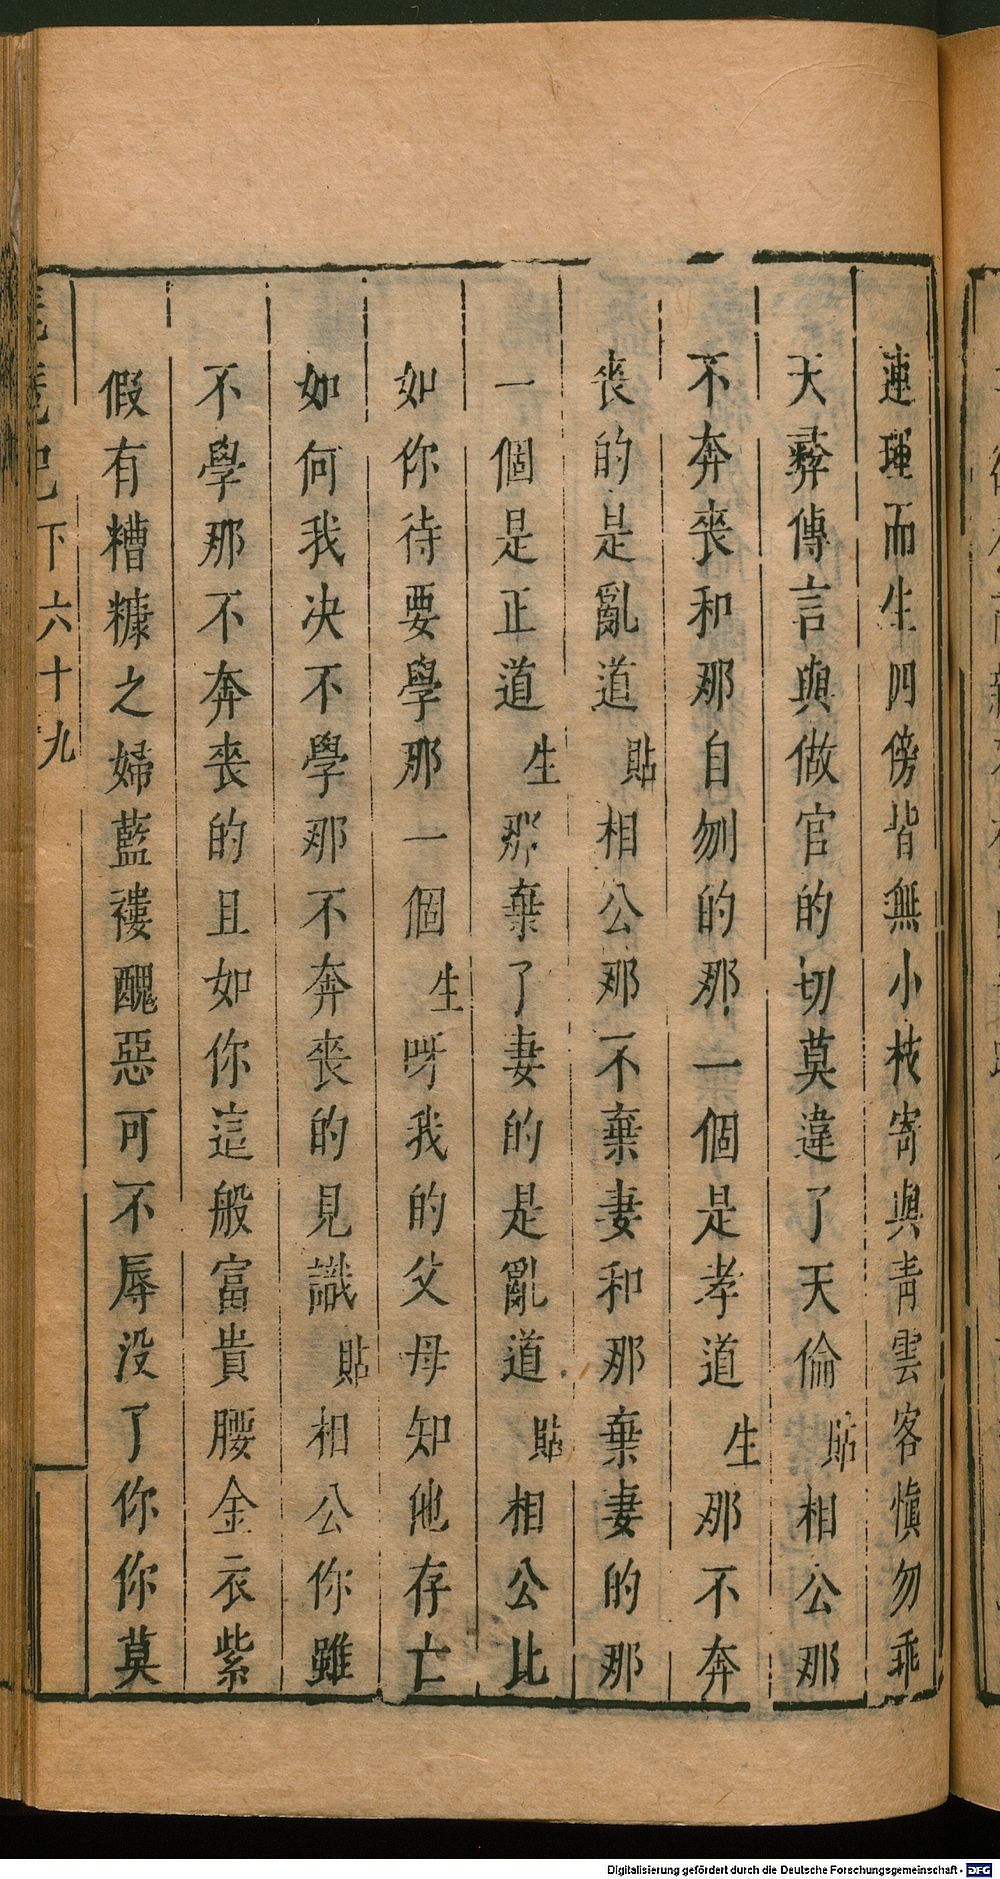 連理而生四傍皆無小枝寄與青雲客慎勿乖
天彜傳言與做官的切莫違了天倫貼相公那
不奔喪和那自刎的那一個是孝道生那不奔
喪的是亂道貼相公那不棄妻和那棄妻的那
一個是正道生那棄了妻的是亂道貼相公比
如你待要學那一個生呀我的父母知他存亡
如何我决不學那不奔喪的見識貼相公你雖
不學那不奔喪的且如你這般富貴腰金衣紫
假有糟糠之婦藍褸醜惡可不辱没了你你莫
琵琶記 下 六十九
Digitalisierung gefördert durch die Deutsche Forschungsgemeinschaft - DFG